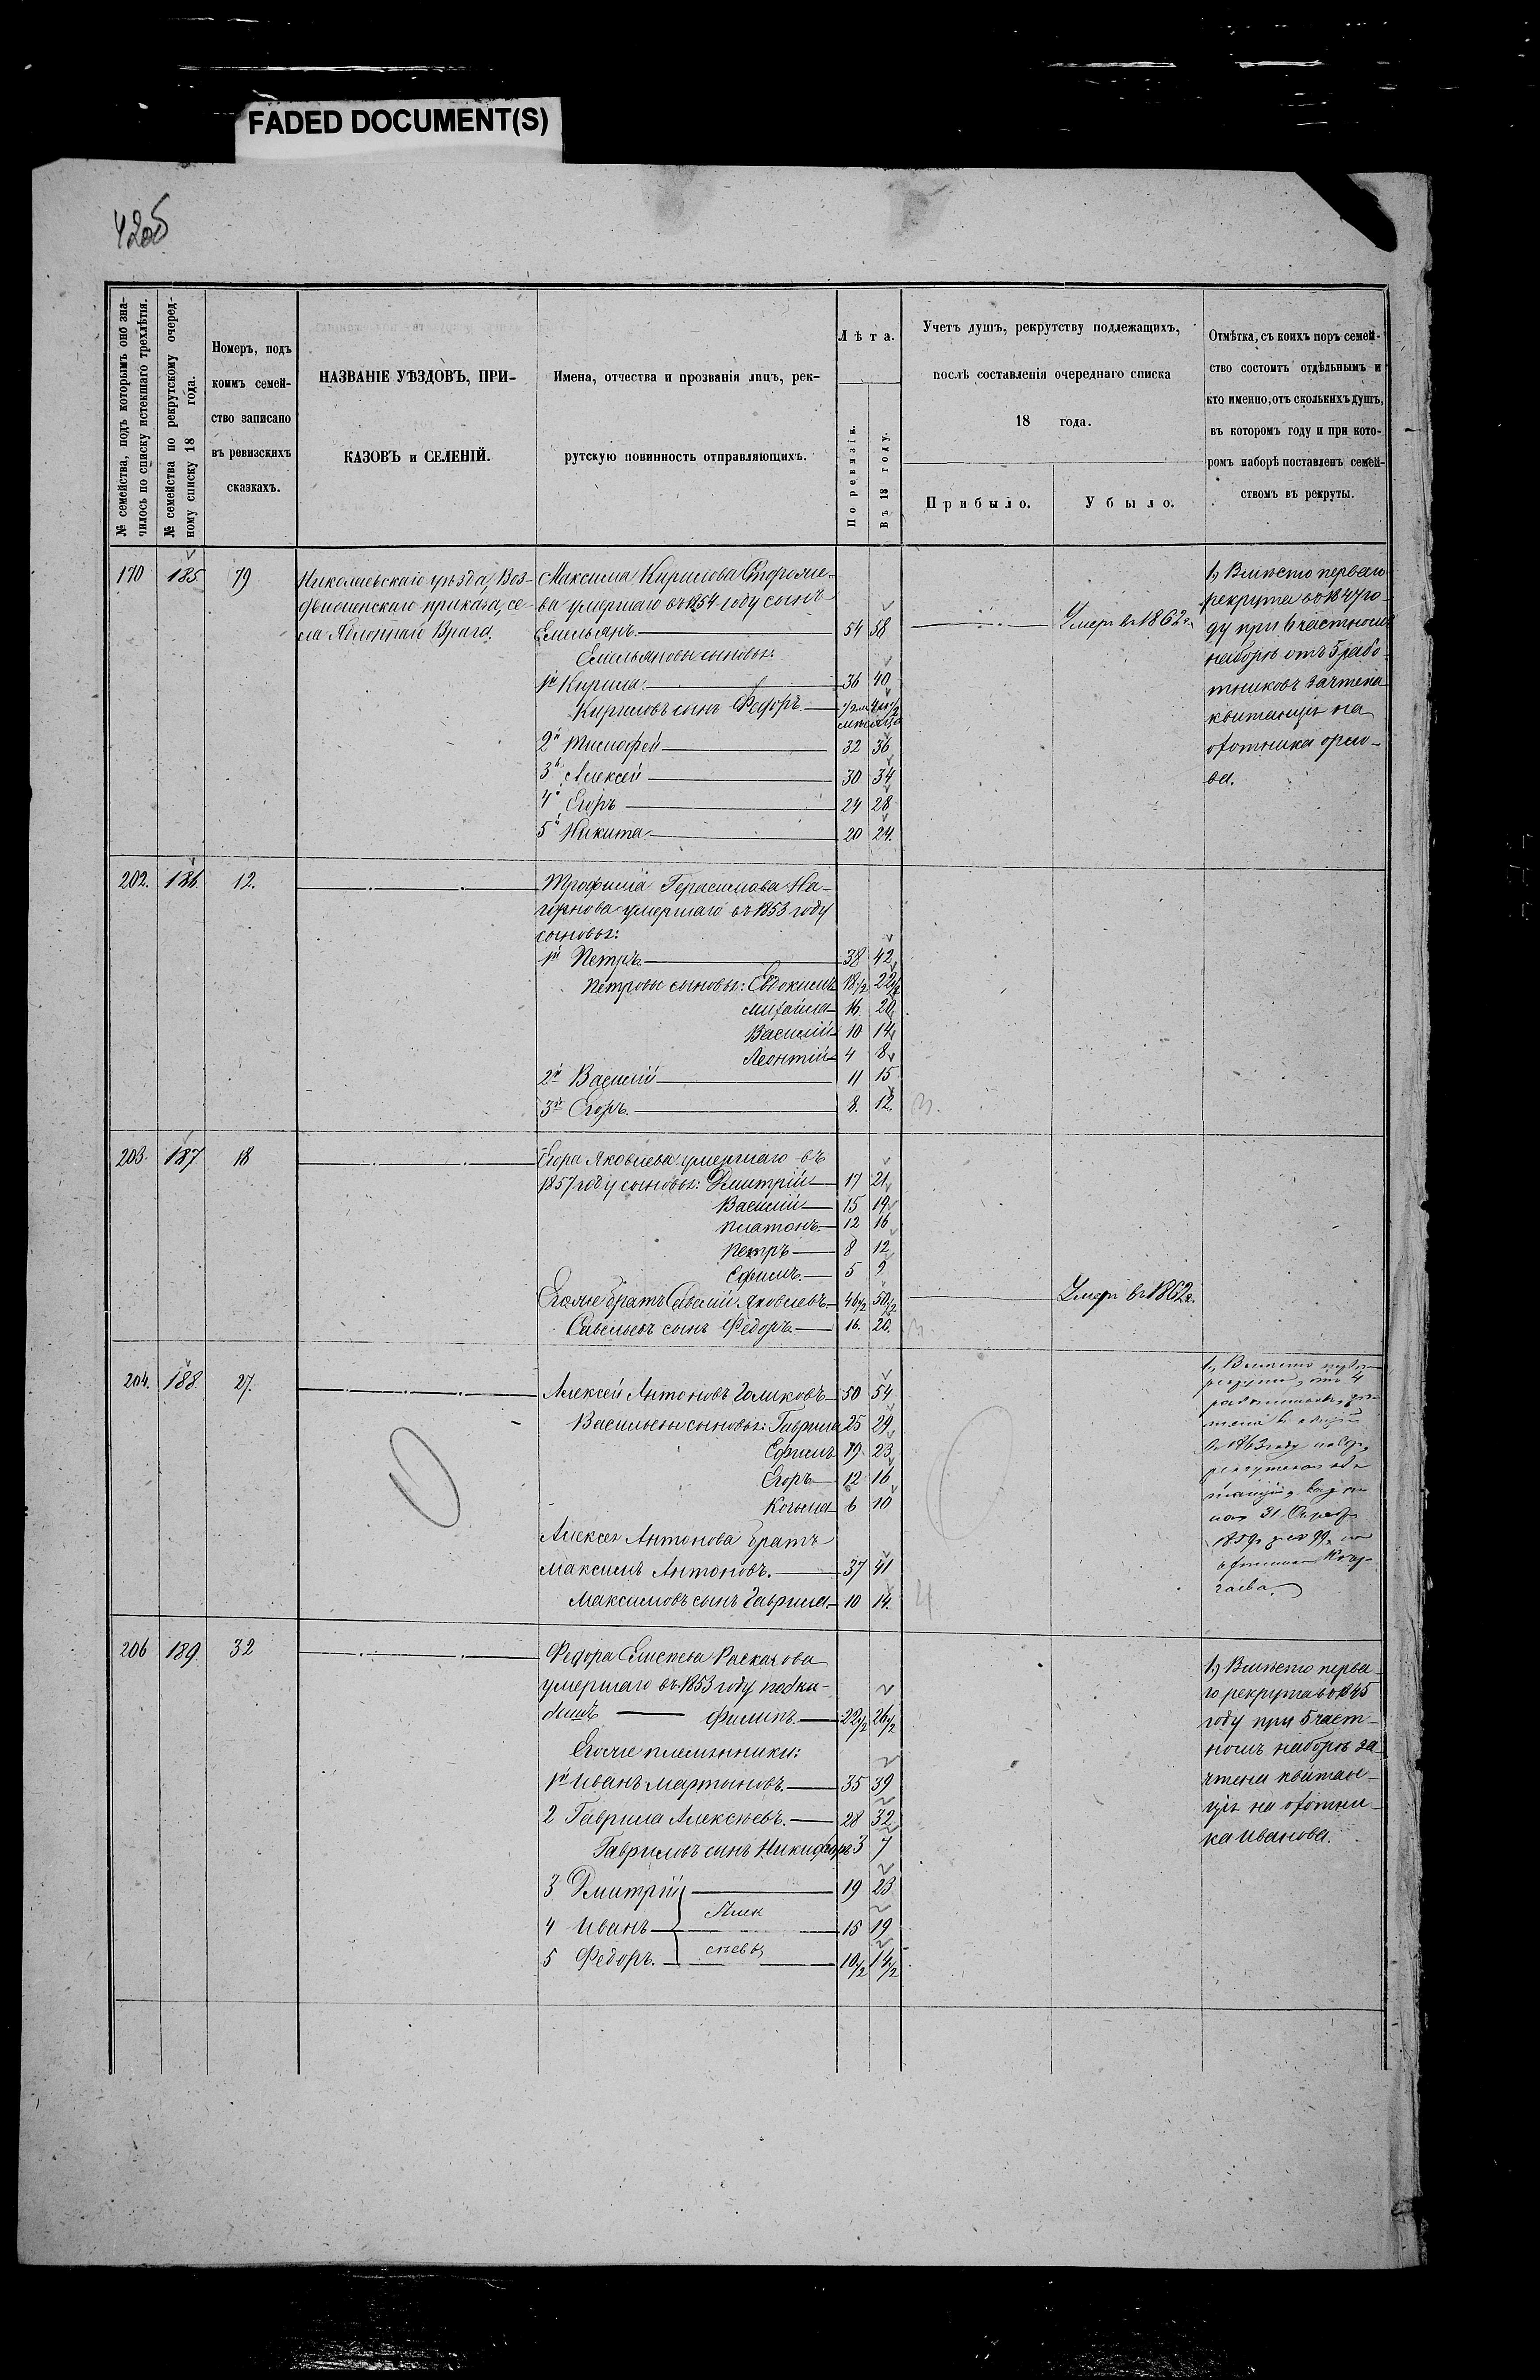 FADED DOCUMENT(S)
№ семейства, подъ которымъ оно зна-
чилось по списку истекшаго трехлѣтія.
№ семейства по рекрутскому очеред-
ному списку 18 года.
Номеръ, подъ
коимъ семей-
ство записано
въ ревизскихъ
сказкахъ.
НАЗВАНІЕ УѢЗДОВЪ, ПРИ-
КАЗОВЪ и СЕЛЕНІЙ.
Имена, отчества и прозванія лицъ, рек-
рутскую повинность отправляющихъ.
Лѣта.
По ревизіи.
Въ 18 году.
Учетъ душъ, рекрутству подлежащихъ,
послѣ составленія очереднаго списка
18 года.
Прибыло.
Убыло.
Отмѣтка, съ коихъ поръ семей-
ство состоитъ отдѣльнымъ и
кто именно, отъ сколькихъ душъ,
въ которомъ году и при кото-
ромъ наборѣ поставленъ семей-
ствомъ въ рекруты.
170 185 79
Николаевскаго уѣзда, Воз-
движенскаго приказа, се-
ла Яблоннаго Врага.
Максима Кирилова Сторож-
ва умершаго въ 1854 году сынъ
Емельянъ. 54 58 Умеръ въ 1862 г.
Емельяновы сыновья:
1й Кирила. 36 40
Кириловъ сынъ Федоръ 1/2 м 4 1/2
мѣсяца
2й Тимофей 32 36
3й Алексей 30 34
4й Егоръ 24 28
5й Никита 20 24.
1, Вмѣсто перваго
рекрута въ 1847 го-
ду при 6 частномъ
наборѣ отъ 5 рабо-
тниковъ зачтена
квитанція на
охотника орло-
ва.
202. 186. 12.
Трофима Герасимова На-
горнова умершаго въ 1853 году
сыновья:
1й Петръ 38 42
Петровы сыновья: Евдокимъ 18 1/2 22 1/2
Михайла 16. 20
Василій 10 14
Леонтій 4 8
2й Василій 11 15
3й Егоръ. 8. 12. 3.
203. 187 18
Егора Яковлева умершаго въ
1857 году сыновья: Дмитрій 17 21
Василій 15 19
Платонъ. 12 16
Петръ 8 12
Ефимъ. 5 9
Егоже братъ Савелій Яковлевъ 46 1/2 50 1/2 Умеръ въ 1862 г.
Савельевъ сынъ Федоръ. 16. 20. 3.
204. 188. 27.
Алексей Антоновъ Голиковъ 50 54
Васильевы сыновья: Гаврила 25 29
Ефимъ 19 23
Егоръ 12 16
Козьма 6 10
Алексея Антонова братъ
Максимъ Антоновъ. 37 41
Максимовъ сынъ Гаврила 10 14. 4
1, Вмѣсто
рекрута, отъ 4
работниковъ, за-
въ 1863 году
31
1859
206 189 32
Федора Елисеева Раскачова
умершаго въ 1853 году подки-
дышъ Филипъ. 22 1/2 26 1/2
Егоже племянники:
1й Иванъ Мартыновъ. 35 39
2 Гаврила Алексѣевъ. 28 32
Гавриловъ сынъ Никифоръ 3 7
3 Дмитрій 19 23
4 Иванъ Алек 15 19
5 Федоръ. сѣевы 10 1/2 14 1/2
1, Вмѣсто перва-
го рекрута въ 1845
году при 5 част-
номъ наборѣ за-
чтена квитан-
ція на охотни-
ка Иванова.